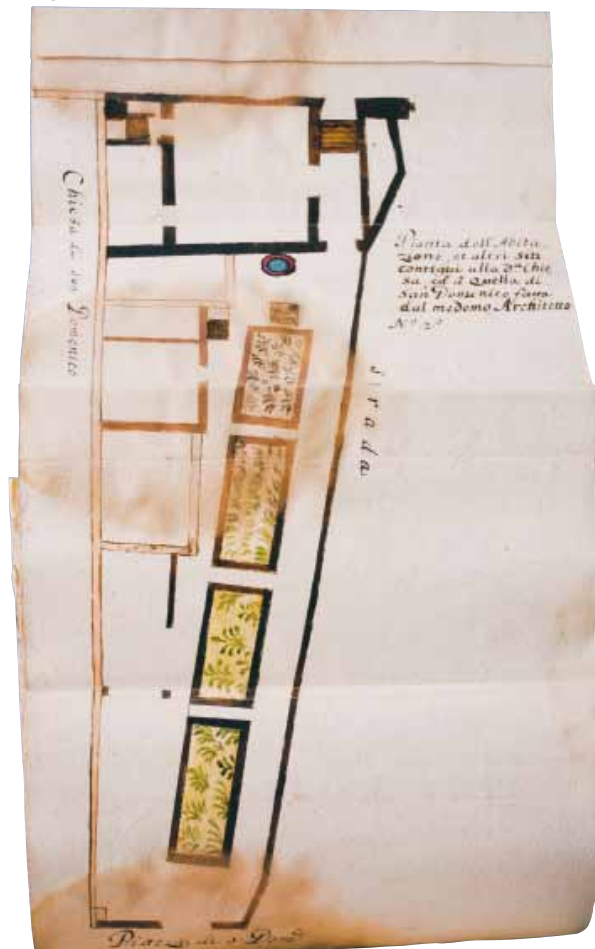 Chiesa di San Domenico
Pianta dell'Abita
zione, et altri Siti
contigui alla dª Chie
sa, ed à Quella di
San Domenico fatta
dal medemo Architetto
Nº 2º
strada
Piazza di S. Domco